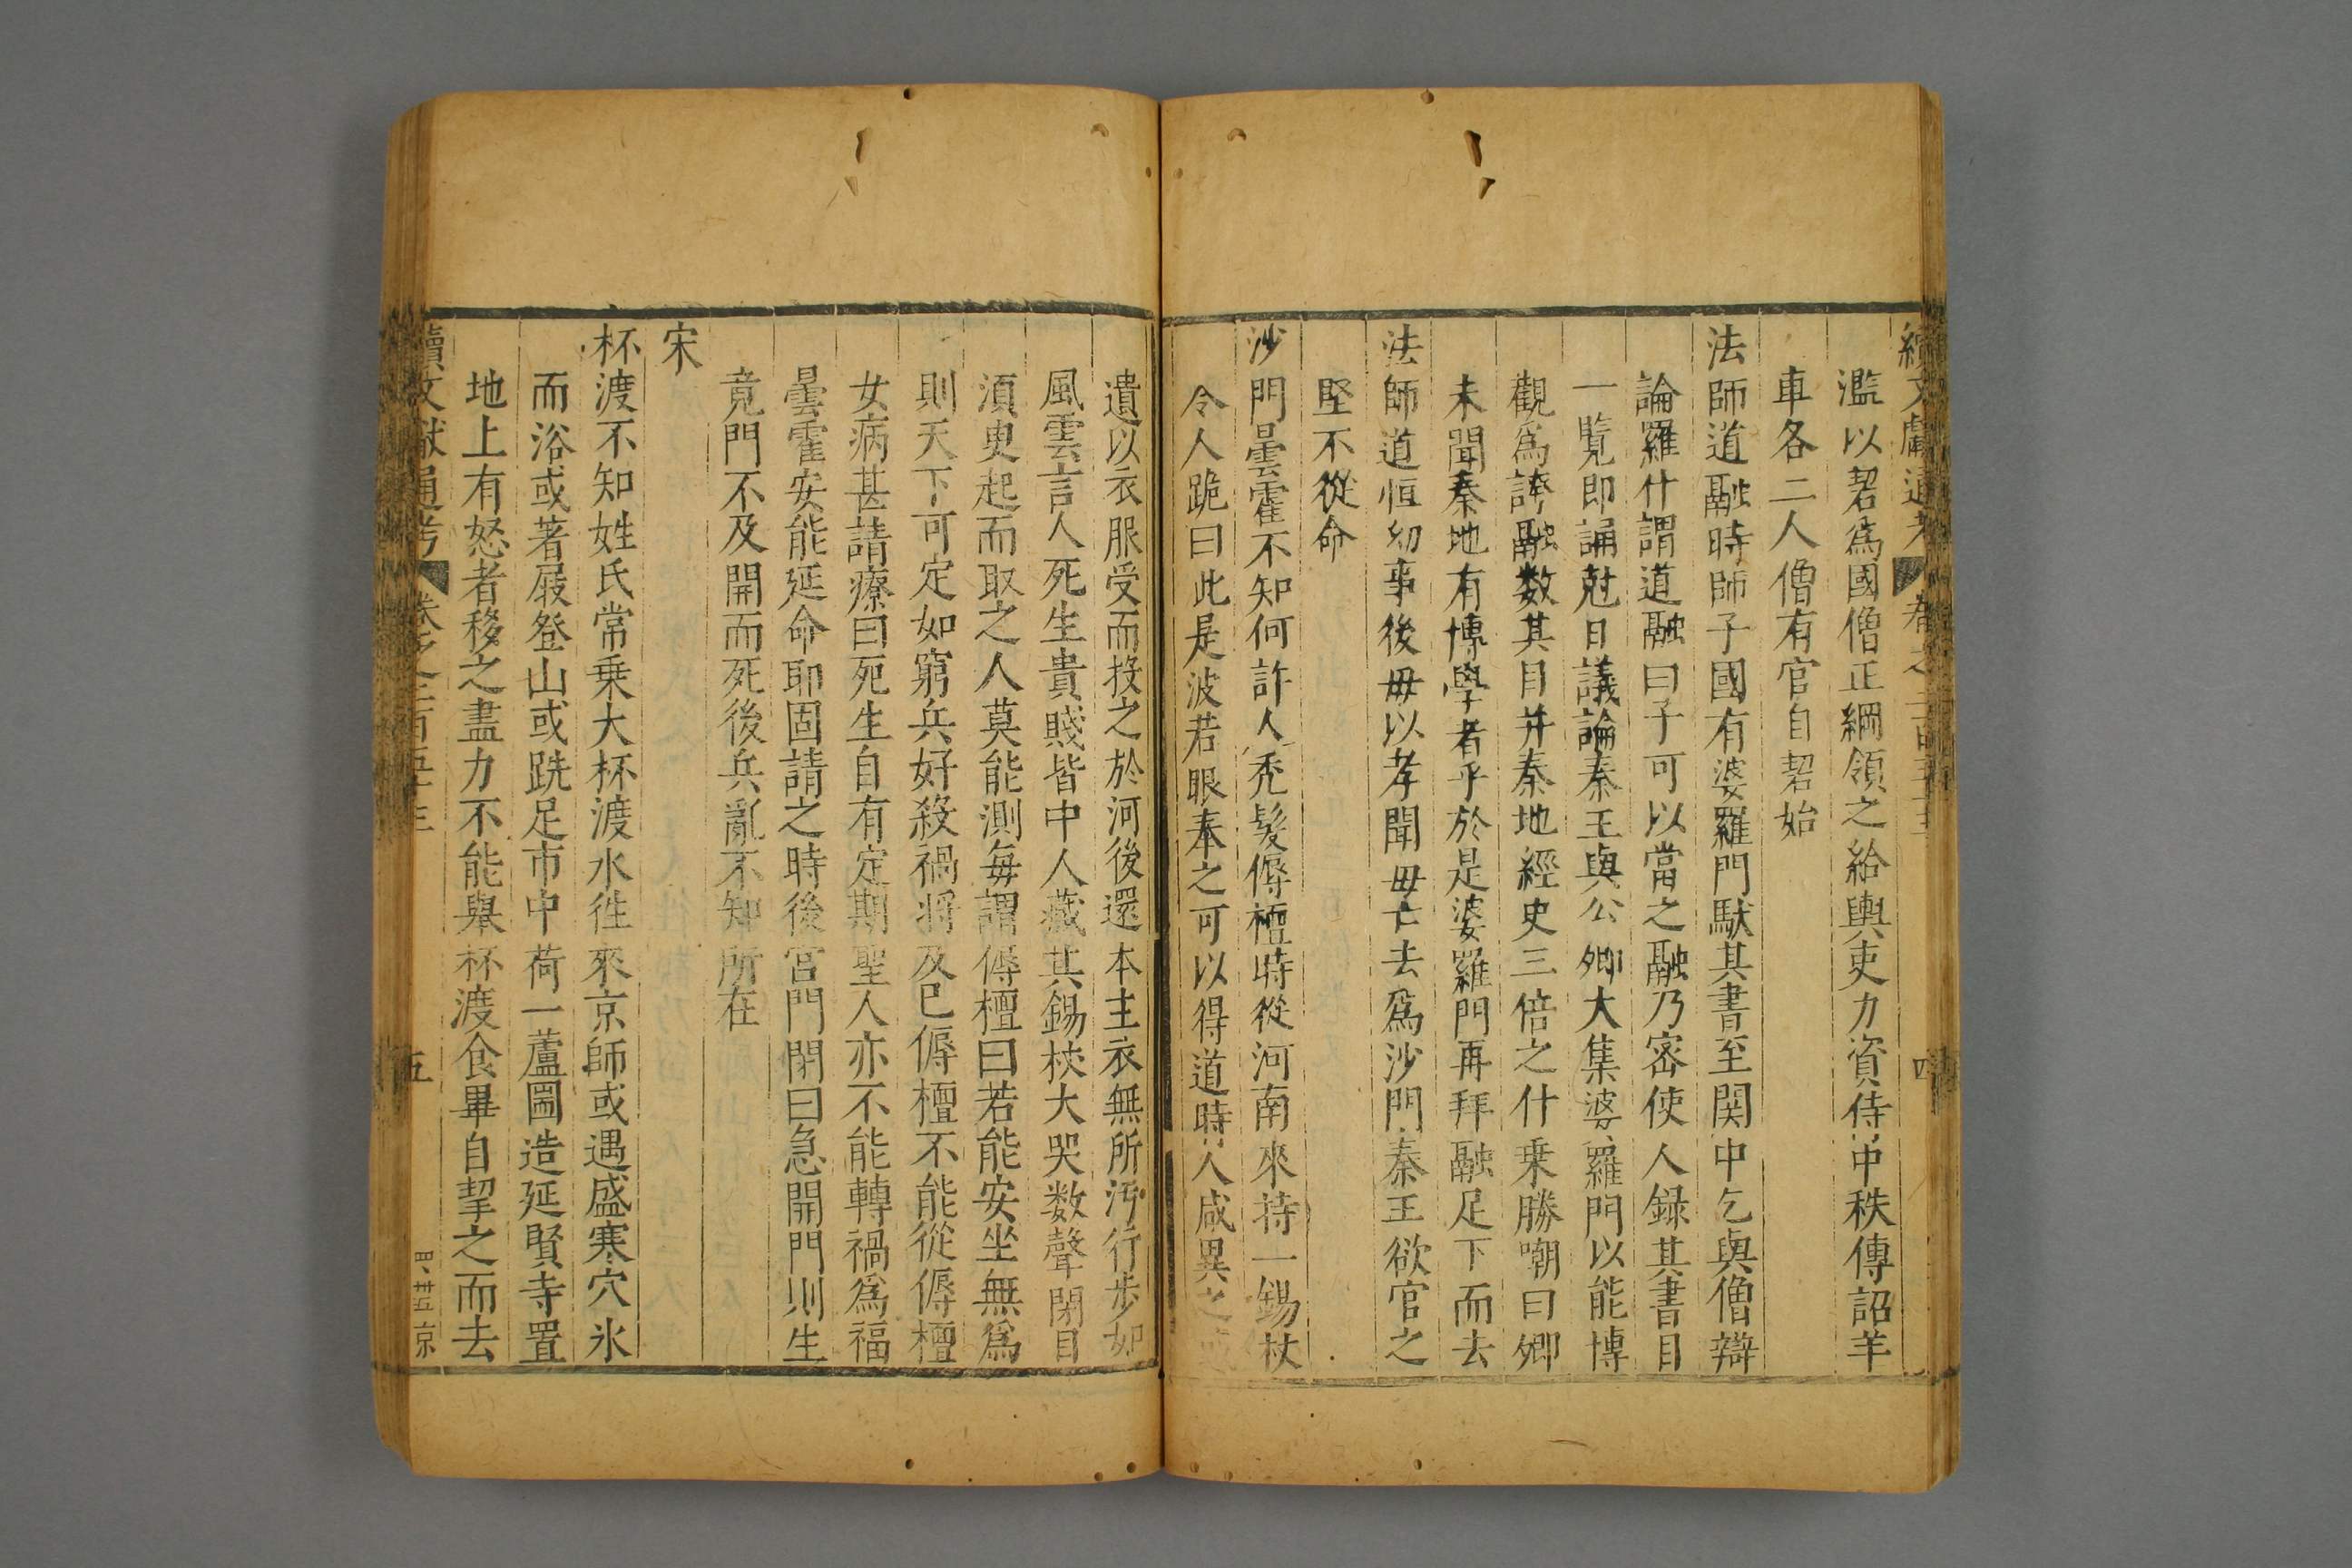 續文獻通考 卷之二百五十三 四
濫以䂮爲國僧正綱領之給輿吏力資侍中秩傳詔羊
車各二人僧有官自䂮始
法師道融時師子國有婆羅門馱其書至関中乞與僧辯
論羅什謂道融曰子可以當之融乃宻使人録其書目
一覧即誦尅日議論秦王與公卿大集婆羅門以能博
觀爲誇融数其目并秦地經史三倍之什乗勝嘲曰卿
未聞秦地有博學者乎於是婆羅門再拜融足下而去
法師道恒幼事後母以孝聞母亡去爲沙門秦王欲官之
堅不從命
沙門曇霍不知何許人秃髮傉檀時從河南來持一錫杖
令人跪曰此是波若眼奉之可以得道時人咸異之或
遺以衣服受而投之於河後還本主衣無所汚行步如
風雲言人死生貴賤皆中人藏其錫杖大哭数聲閉目
須臾起而取之人莫能測每謂傉檀曰若能安坐無爲
則天下可定如窮兵好殺禍將及已傉檀不能從傉檀
女病甚請療曰死生自有定期聖人亦不能轉禍爲福
曇霍安能延命耶固請之時後宮門閉曰急開門則生
竟門不及開而死後兵亂不知所在
宋
杯渡不知姓氏常乗大杯渡水徃來京師或遇盛寒穴氷
而浴或著屐登山或跣足市中荷一蘆圌造延賢寺置
地上有怒者移之盡力不能舉杯渡食畢自挈之而去
續文獻通考 卷之二百五十三 五